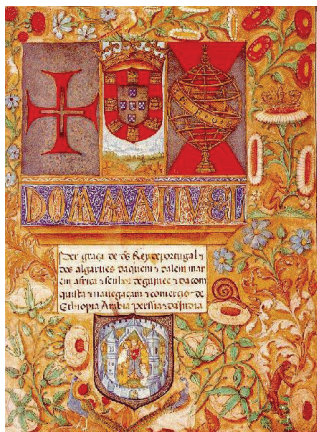 DOM MANVEL
Per graça de ds̃ Rey de portugal ⁊
dos algarues daquem ⁊ dalem mar
em africa senhor de guinee ⁊ da com
quista ⁊ nauegaçam ⁊ comercio de
Ethiopia Arabia persia ⁊ da Jndia